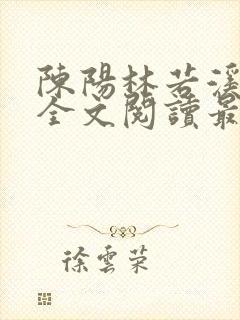 陳陽林若溪
全文閱讀最
徐雲荣